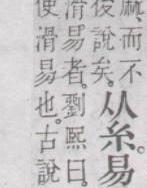 麻、而不
說矣。
从糸。易
滑易者。劉熙曰。
使滑易也。古說